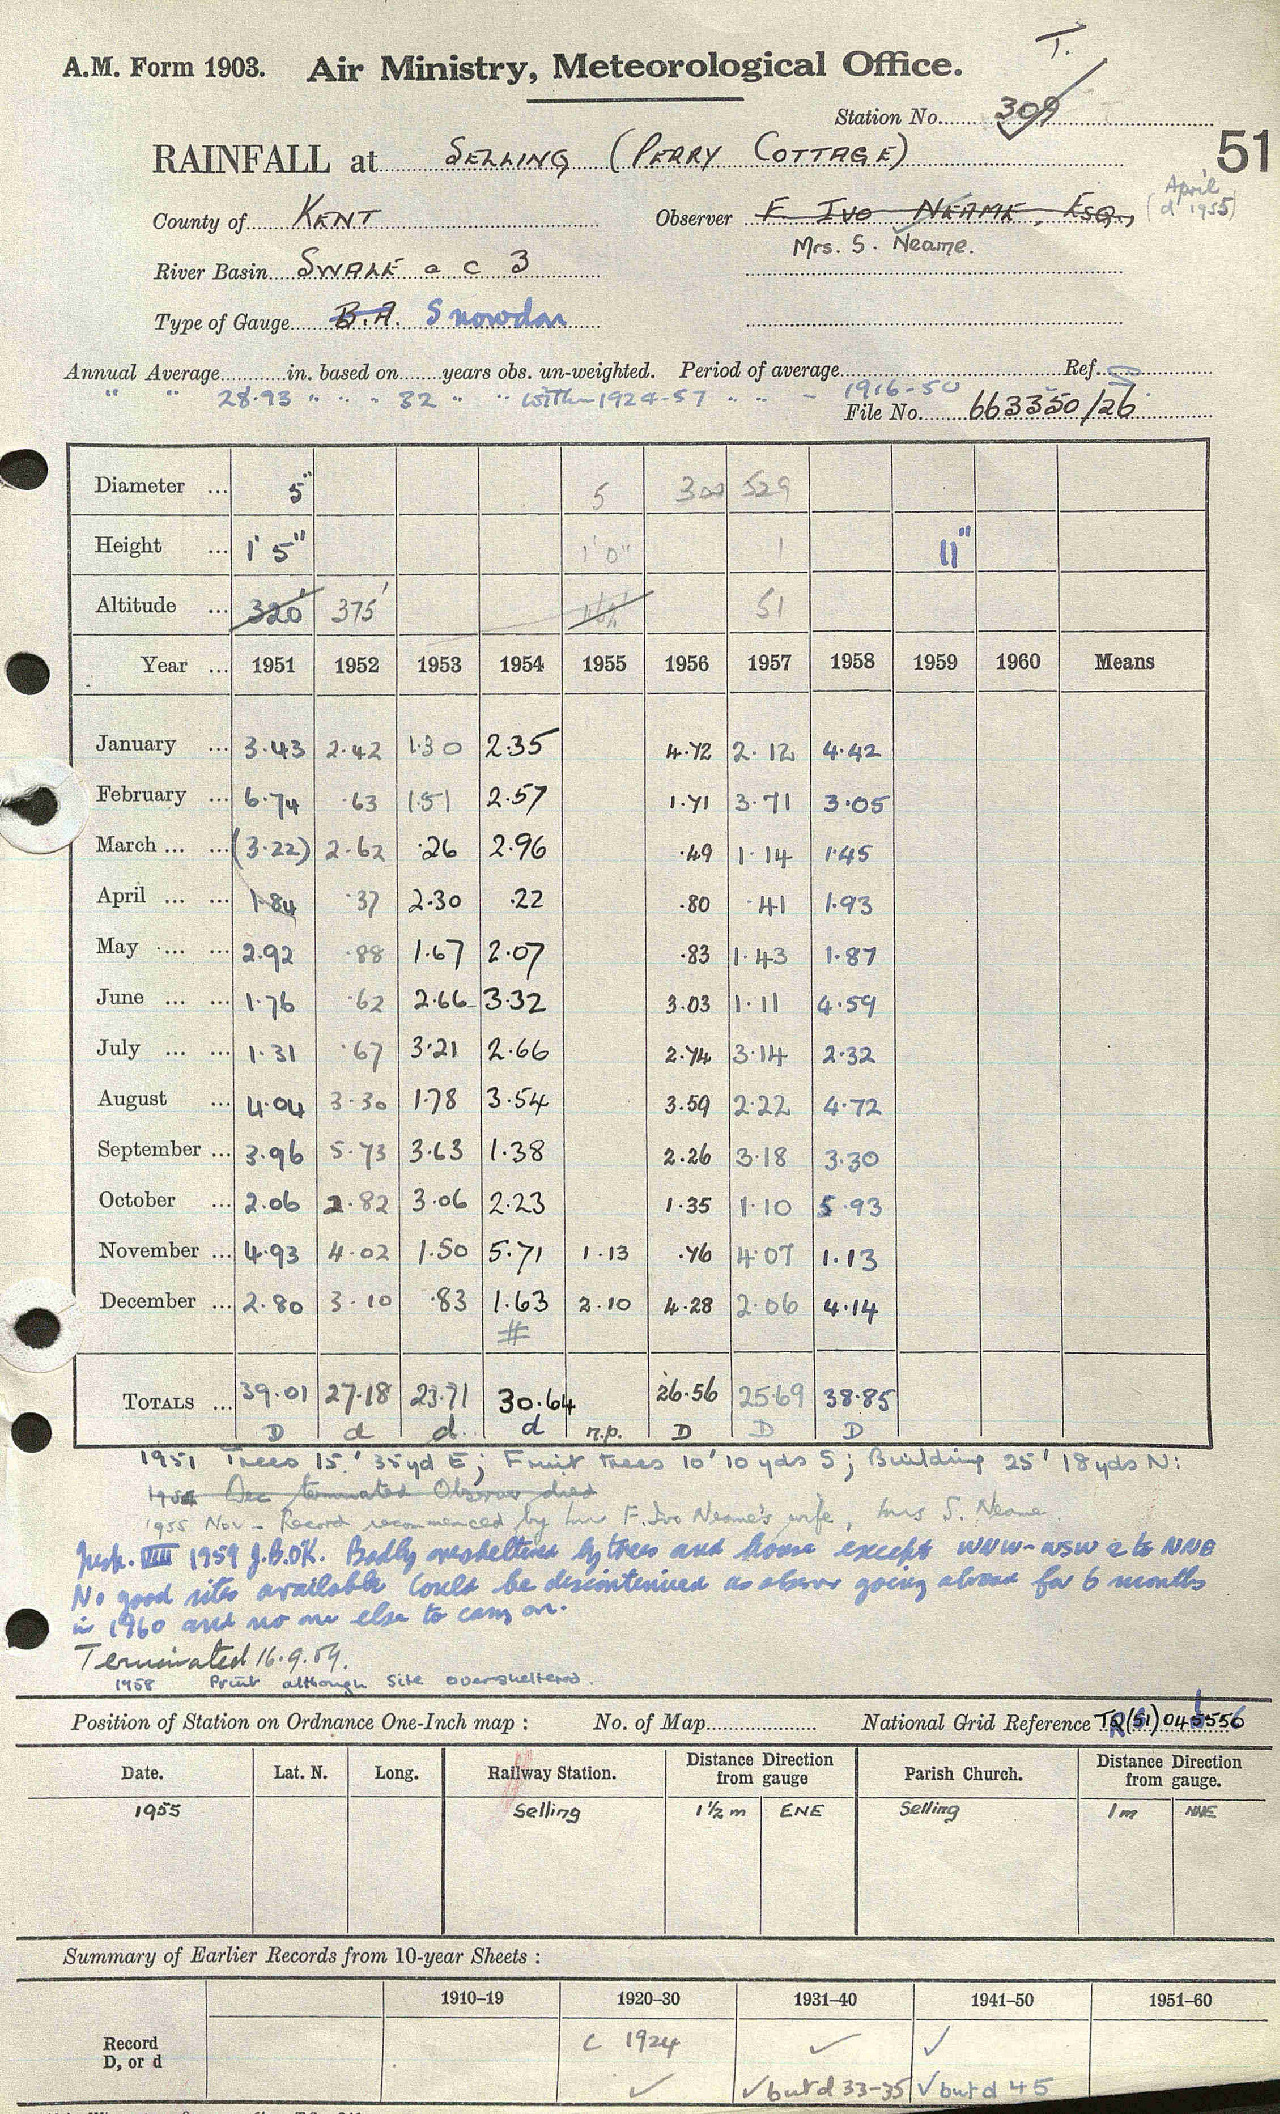 T.
A.M. Form 1903. Air Ministry, Meteorological Office.
Station No. 309
RAINFALL at SELLING (PERRY COTTAGE)
51
County of KENT Observer F IVO NEAME, ESQ., (d April 1955)
Mrs. S. Neame.
River Basin SWALE a c 3
Type of Gauge B.A. Snowdon
Annual Average in. based on years obs. un-weighted. Period of average Ref.
" " 28.93 " " " 32 " " within 1924-57 " " - 1916-50
File No. 663350/26
Diameter ... 5" 5 529
Height ... 1' 5" 1'0" 1 11"
Altitude ... 320' 375' 51
Year ... 1951 1952 1953 1954 1955 1956 1957 1958 1959 1960 Means
January ... 3.43 2.42 1.30 2.35 4.72 2.12 4.42
February ... 6.74 .63 1.51 2.57 1.71 3.71 3.05
March ... ... (3.22) 2.62 .26 2.96 .49 1.14 1.45
April ... ... 1.84 .37 2.30 .22 .80 .41 1.93
May ... ... 2.92 .88 1.67 2.07 .83 1.43 1.87
June ... ... 1.76 .62 2.66 3.32 3.03 1.11 4.59
July ... ... 1.31 .67 3.21 2.66 2.74 3.14 2.32
August ... 4.04 3.30 1.78 3.54 3.59 2.22 4.72
September ... 3.96 5.73 3.63 1.38 2.26 3.18 3.30
October ... 2.06 2.82 3.06 2.23 1.35 1.10 5.93
November ... 4.93 4.02 1.50 5.71 1.13 .76 4.07 1.13
December ... 2.80 3.10 .83 1.63 2.10 4.28 2.06 4.14
#
TOTALS ... 39.01 27.18 23.71 30.64 26.56 25.69 38.85
D d d d n.p. D D D
1951 Trees 15' 35yd E; Fruit trees 10' 10 yds S; Building 25' 18yds N:
1954 Dec terminated Observer died
1955 Nov - Record recommenced by Mr F. Ivo Neame's wife, Mrs S. Neame.
Insp. VIII 1959 J.B.OK. Badly oversheltered by trees and house except WNW-WSW & to NNE
No good sites available Could be discontinued as observer going abroad for 6 months
in 1960 and no one else to carry on.
Terminated 16.9.59.
1958 Print although site oversheltered.
Position of Station on Ordnance One-Inch map : No. of Map National Grid Reference TR(51)
Date. Lat. N. Long. Railway Station. Distance Direction from gauge Parish Church. Distance Direction from gauge.
1955 Selling 1½ m ENE Selling 1m NNE
Summary of Earlier Records from 10-year Sheets :
1910-19 1920-30 1931-40 1941-50 1951-60
Record D, or d C 1924 ✓ ✓
✓ ✓ but d 33-35 ✓ but d 45